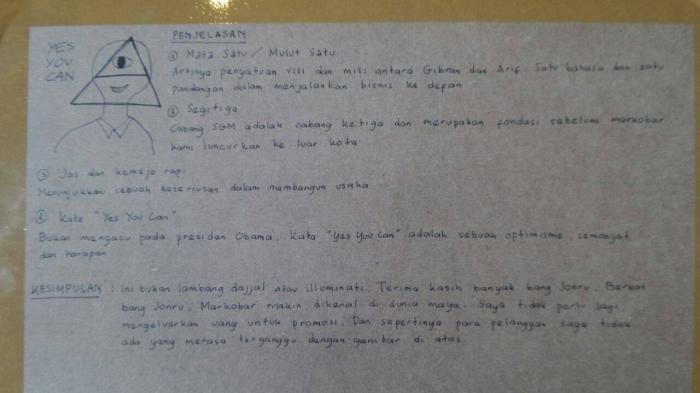 YES
YOU
CAN
PENJELASAN
① Mata Satu / Mulut Satu
Artinya penyatuan visi dan misi antara Gibran dan Arif. Satu bahasa dan satu
pandangan dalam menjalankan bisnis ke depan
② Segitiga
Cabang SGM adalah cabang ketiga dan merupakan fondasi sebelum markobar
kami luncurkan ke luar kota
③ Jas dan kemeja rapi
Menunjukkan sebuah keseriusan dalam membangun usaha
④ Kata "Yes You Can"
Bukan mengacu pada presiden Obama. Kata "Yes You Can" adalah sebuah optimisme, semangat
dan harapan
KESIMPULAN : Ini bukan lambang dajjal atau illuminati. Terima kasih banyak bang Jonru. Berkat
bang Jonru, Markobar makin dikenal di dunia maya. Saya tidak perlu lagi
mengeluarkan uang untuk promosi. Dan sepertinya para pelanggan saya tidak
ada yang merasa terganggu dengan gambar di atas.